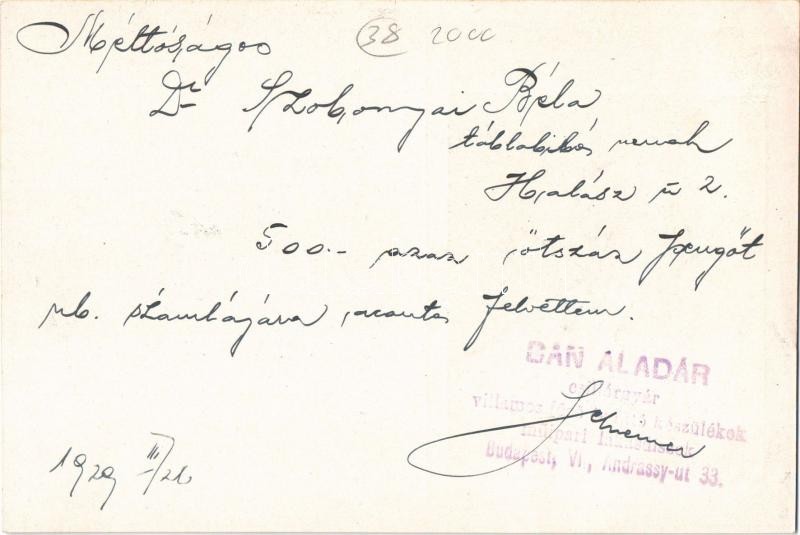 38 2000
Méltóságos
Dr Szobonyai Béla
táblabíró urnak
Halász u 2.
500.- azaz ötszáz Pengőt
mb. számlájára aconto felvettem.
BÁN ALADÁR
csillárgyár
villamos készülékok
műipari
Budapest, VI., Andrássy-ut 33.
1929 III/21